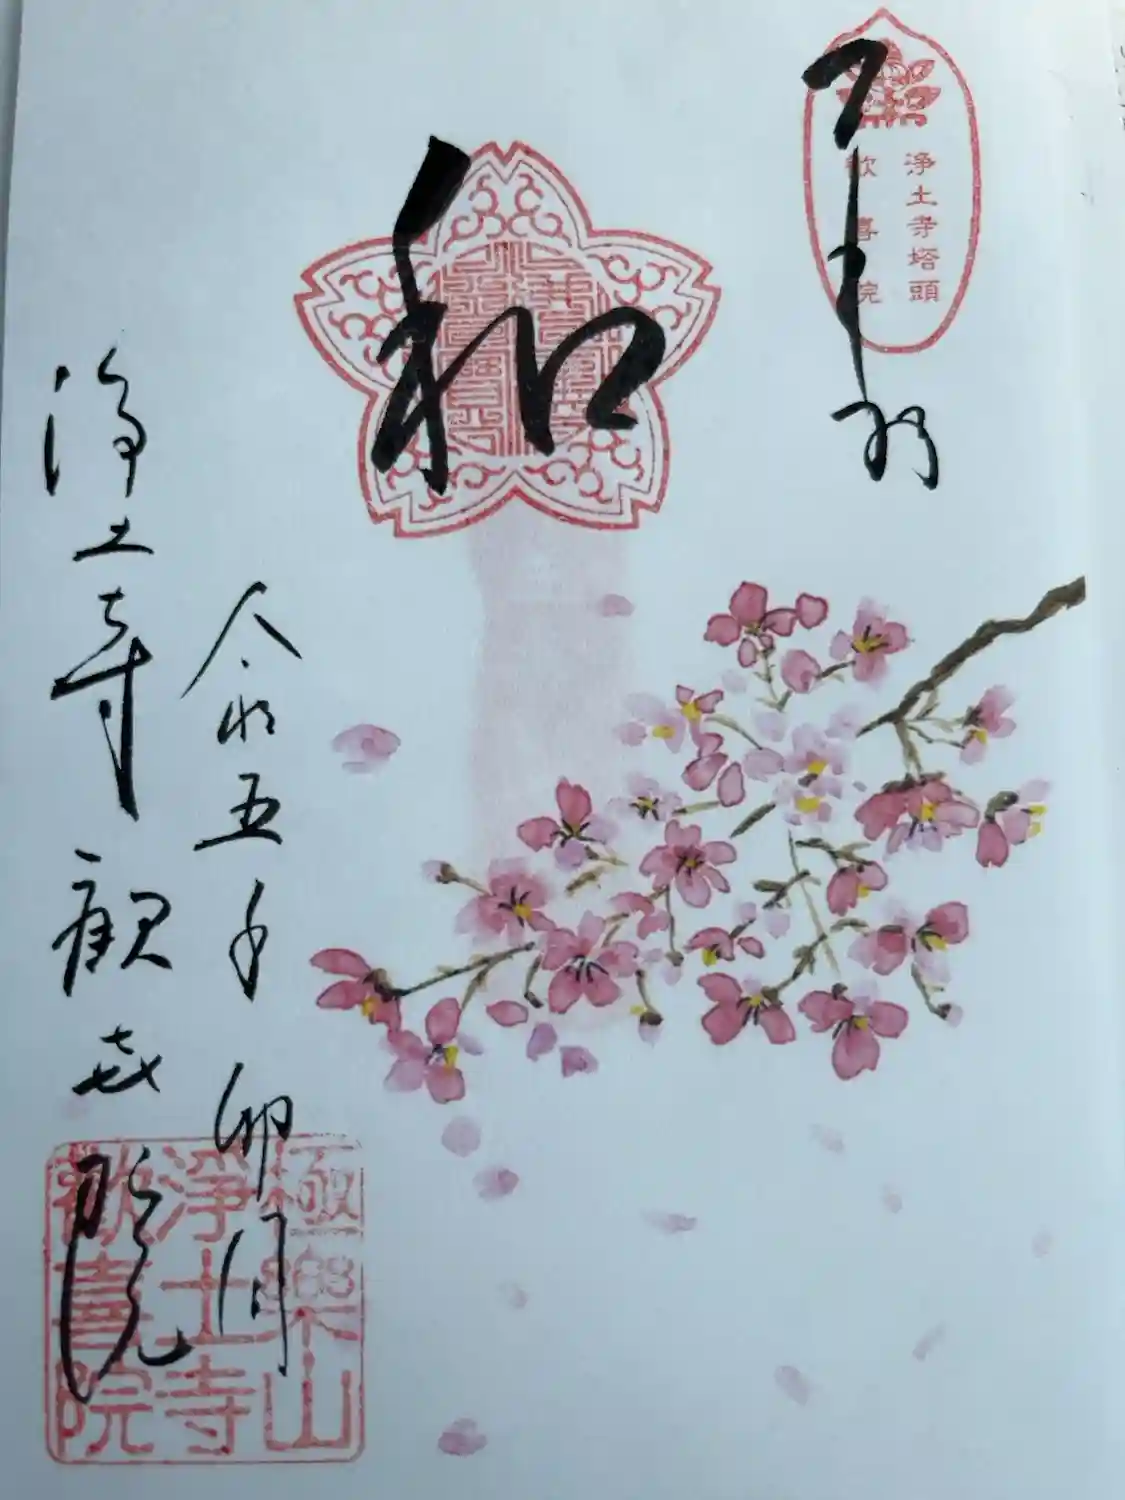 浄土寺塔頭
歓喜院
和
令和五年 卯月
浄土寺 歓喜院
極樂山
淨土寺
歡喜院